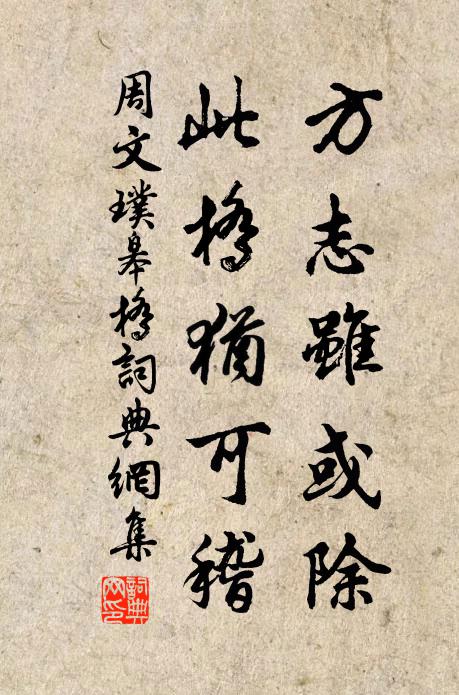 方志雖或除
此橋猶可稽
周文璞皋橋詞典網集
詞典网印